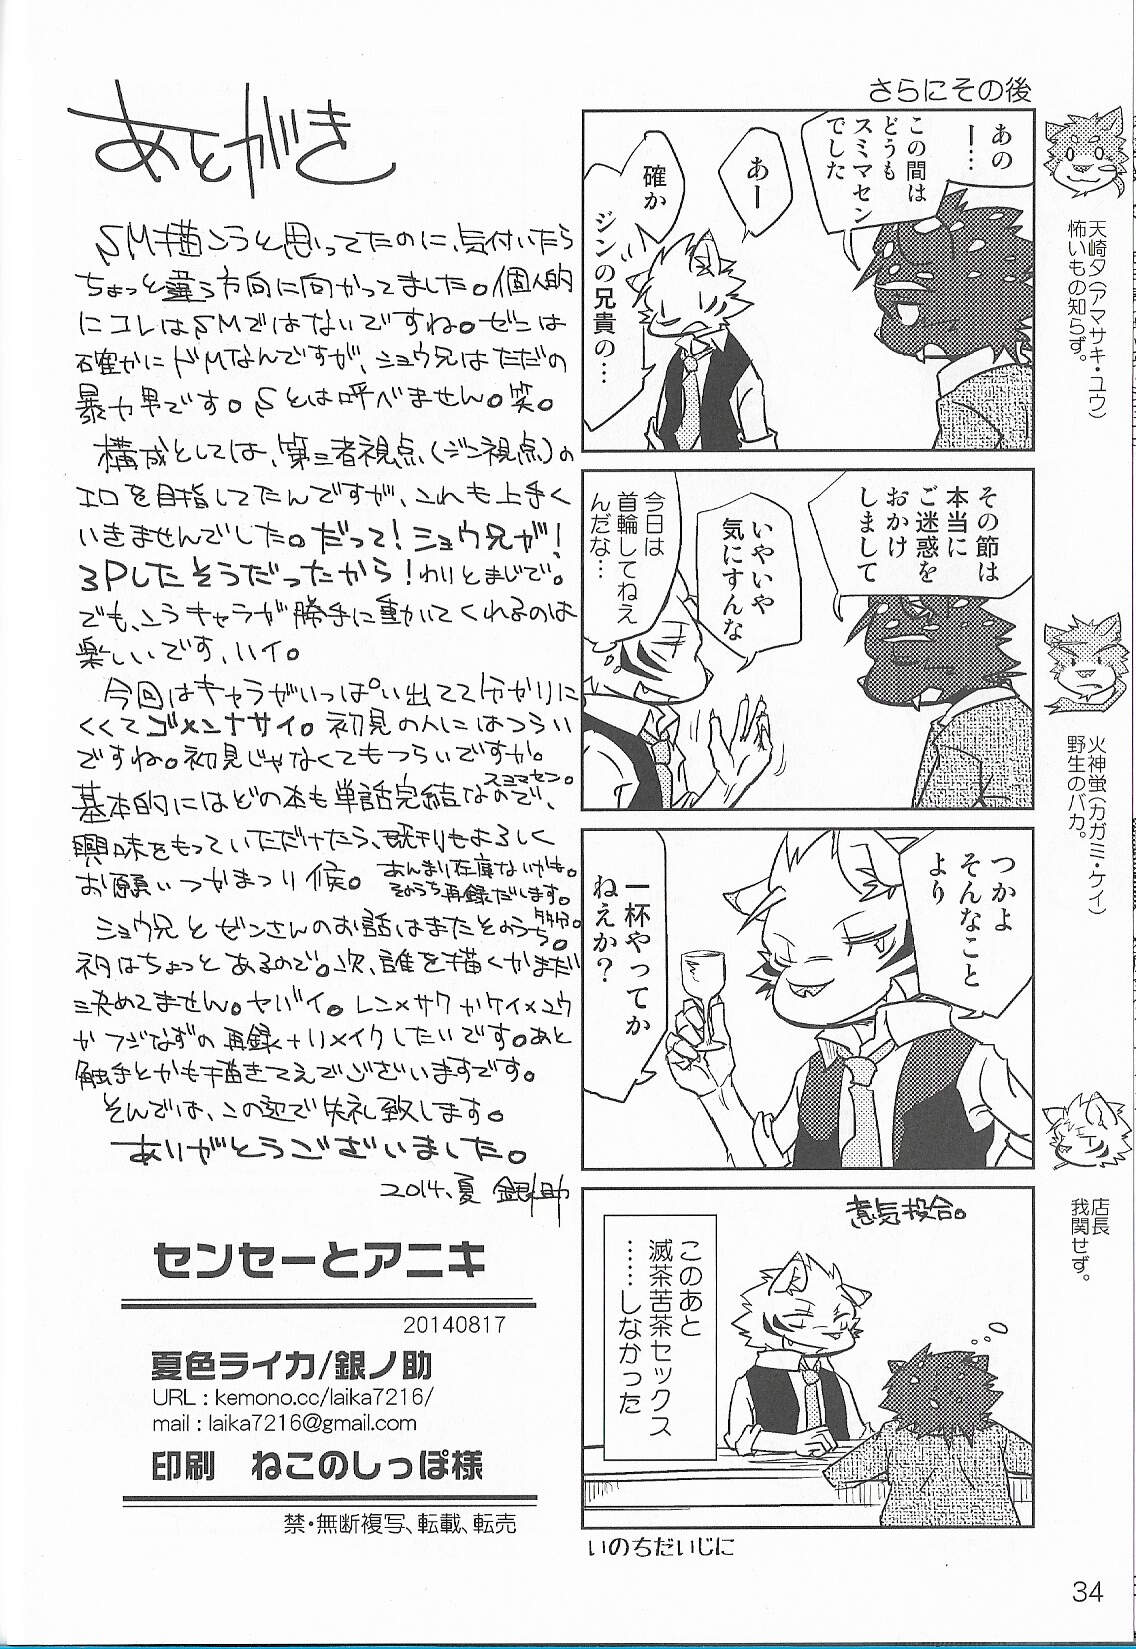 さらにその後
あの
ー…
この間は
どうも
スミマセン
でした
あー
確か
ジンの兄貴の…
その節は
本当に
ご迷惑を
おかけ
しまして
いやいや
気にすんな
今日は
首輪してねえ
んだな…
つかよ
そんなこと
より
一杯やってか
ねえか?
意気投合。
このあと
滅茶苦茶セックス
……しなかった
いのちだいじに
天崎夕(アマサキ・ユウ)
怖いもの知らず。
火神蛍(カガミ・ケイ)
野生のバカ。
店長
我関せず。
あとがき
SM描こうと思ってたのに、気付いたら
ちょっと違う方向に向かってました。個人的
にコレはSMではないですね。ゼンは
確かにドMなんですが、ショウ兄はただの
暴力男です。Sとは呼べません。笑。
構成としては、第三者視点(ジン視点)の
エロを目指してたんですが、これも上手く
いきませんでした。だって!ショウ兄が!
3Pしたそうだったから!わりとまじで。
でも、こうキャラが勝手に動いてくれるのは
楽しいです、ハイ。
今回はキャラがいっぱい出てて分かりに
くくてゴメンナサイ。初見の人にはつらい
ですね。初見じゃなくてもつらいですか。
スミマセン。
基本的にはどの本も単話完結なので、
興味をもっていただけたら、既刊もよろしく
お願いつかまつり候。
あんまり在庫ないかも。
そのうち再録だします。
ショウ兄とゼンさんのお話はまたそのうち。
多分。
ネタはちょっとあるので。次、誰を描くかまだ
決めてません。ヤバイ。レン×サクかケイ×ユウ
かフジなずの再録+リメイクしたいです。あと
触手とかも描きてえでございますです。
そんでは、この辺で失礼致します。
ありがとうございました。
2014、夏 銀ノ助
センセーとアニキ
20140817
夏色ライカ/銀ノ助
URL : kemono.cc/laika7216/
mail : laika7216@gmail.com
印刷 ねこのしっぽ様
禁・無断複写、転載、転売
34